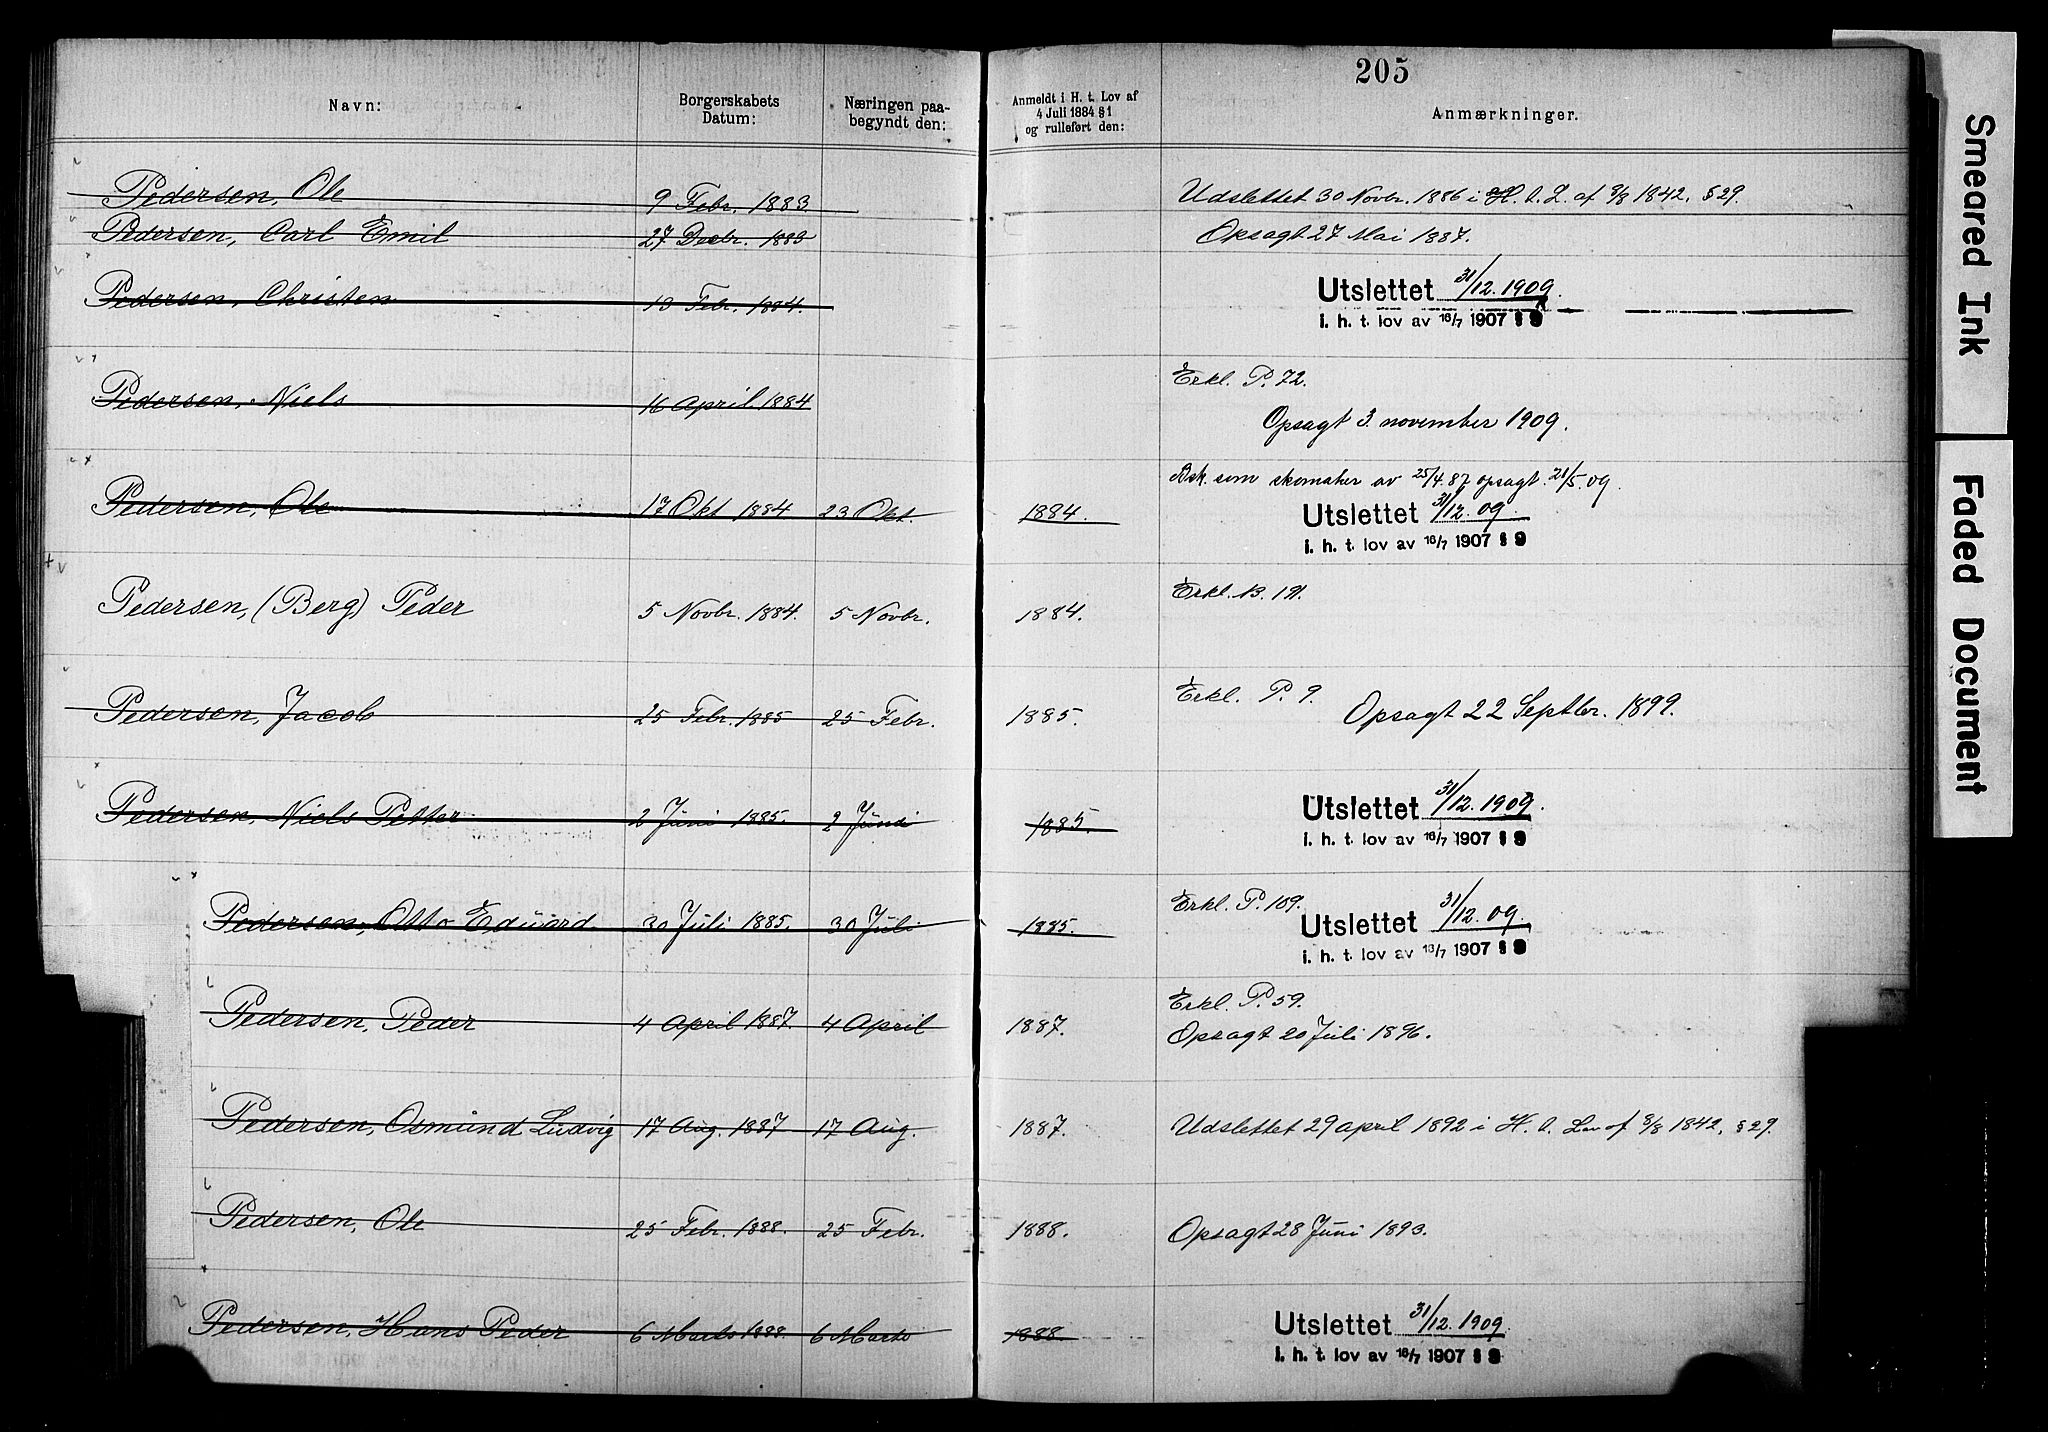 205
Navn: Borgerskabets Datum: Næringen paa-begyndt den: Anmeldt i H. t. Lov af 4 Juli 1884 §1 og rulleført den: Anmærkninger.
Pedersen, Ole 9 Febr. 1883. Udslettet 30 Novbr. 1886 i H. t. L. af 8/8 1842, §29.
Pedersen, Carl Emil 27 Decbr. 1883 Opsagt 27 Mai 1887.
Pedersen, Christen Febr. 1884. Utslettet 31/12. 1909.
i. h. t. lov av 16/7 1907 § 9
Erkl. P. 72.
Pedersen, Niels 16 April 1884
Opsagt 3. november 1909.
Bsk. som skomaker av 25/4 87 opsagt 21/5. 09.
Pedersen, Ole 17 Okt 1884 23 Okt. 1884. Utslettet 31/12. 09.
i. h. t. lov av 16/7 1907 § 9
Erkl. B. 191.
Pedersen, (Berg) Peder 5 Novbr. 1884. 5 Novbr. 1884.
Erkl. P. 9.
Pedersen, Jacob 25 Febr. 1885 25 Febr. 1885. Opsagt 22 Septbr. 1899.
Pedersen, Niels Petter 2 Juni 1885. 2 Juni 1885. Utslettet 31/12. 1909.
i. h. t. lov av 16/7 1907 § 9
Erkl. P. 109.
Pedersen, Otto Eduard. 30 Juli 1885. 30 Juli 1885. Utslettet 31/12. 09.
i. h. t. lov av 16/7 1907 § 9
Erkl. P. 59.
Pedersen, Peder 4 April 1887. 4 April 1887. Opsagt 20 Juli 1896.
Pedersen, Osmund Ludvig 17 Aug. 1887 17 Aug. 1887. Udslettet 29 april 1892 i H. t. Lov af 8/8 1842, §29.
Pedersen, Ole 25 Febr. 1888. 25 Febr. 1888. Opsagt 28 Juni 1893.
Pedersen, Hans Peder 6 Marts 1888. 6 Marts 1888. Utslettet 31/12. 1909.
i. h. t. lov av 16/7 1907 § 9
Smeared Ink
Faded Document